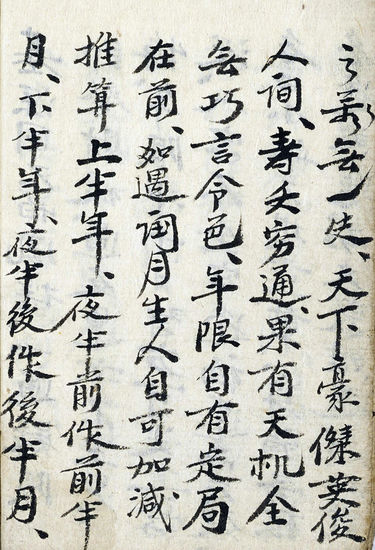 之萬無一失、天下豪傑英俊
人詢、寿夭穷通、果有天机全
無巧言令色、年限自有定局
在前、如遇閏月生人自可加減
推算上半年、夜半前作前半
月、下半年、夜半後作後半月、